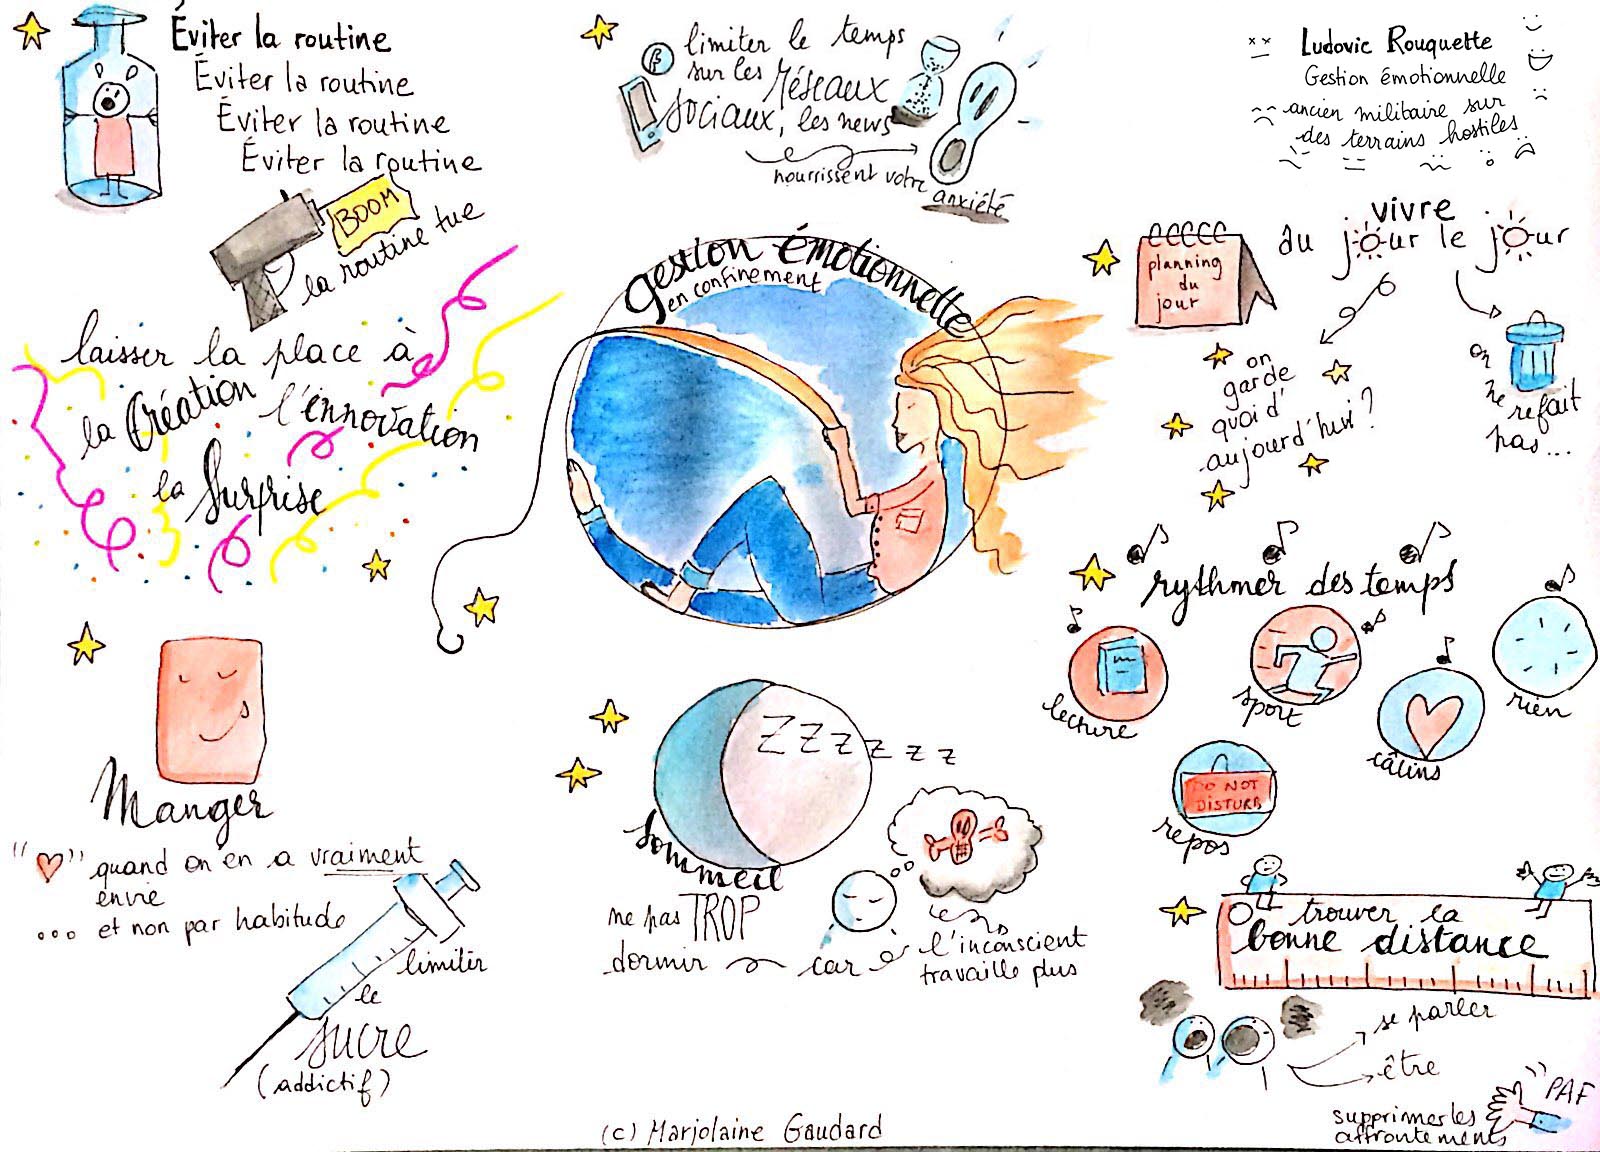 Éviter la routine
Éviter la routine
Éviter la routine
Éviter la routine
BOOM
la routine tue
laisser la place à
la Création l'innovation
la Surprise
limiter le temps
sur les Réseaux
sociaux, les news
nourrissent votre
anxiété
Ludovic Rouquette
Gestion émotionnelle
ancien militaire sur
des terrains hostiles
gestion émotionnelle
en confinement
vivre
au jour le jour
planning
du
jour
on
garde
quoi d'
aujourd'hui ?
on
ne refait
pas...
rythmer des temps
lecture
sport
câlins
rien
DO NOT
DISTURB
repos
Manger
"♥" quand on en a vraiment
envie
... et non par habitude
limiter
le
sucre
(addictif)
ZZZZZZ
Sommeil
ne pas TROP
dormir car
l'inconscient
travaille plus
trouver la
bonne distance
se parler
être
PAF
supprimer les
affrontements
(c) Marjolaine Gaudard